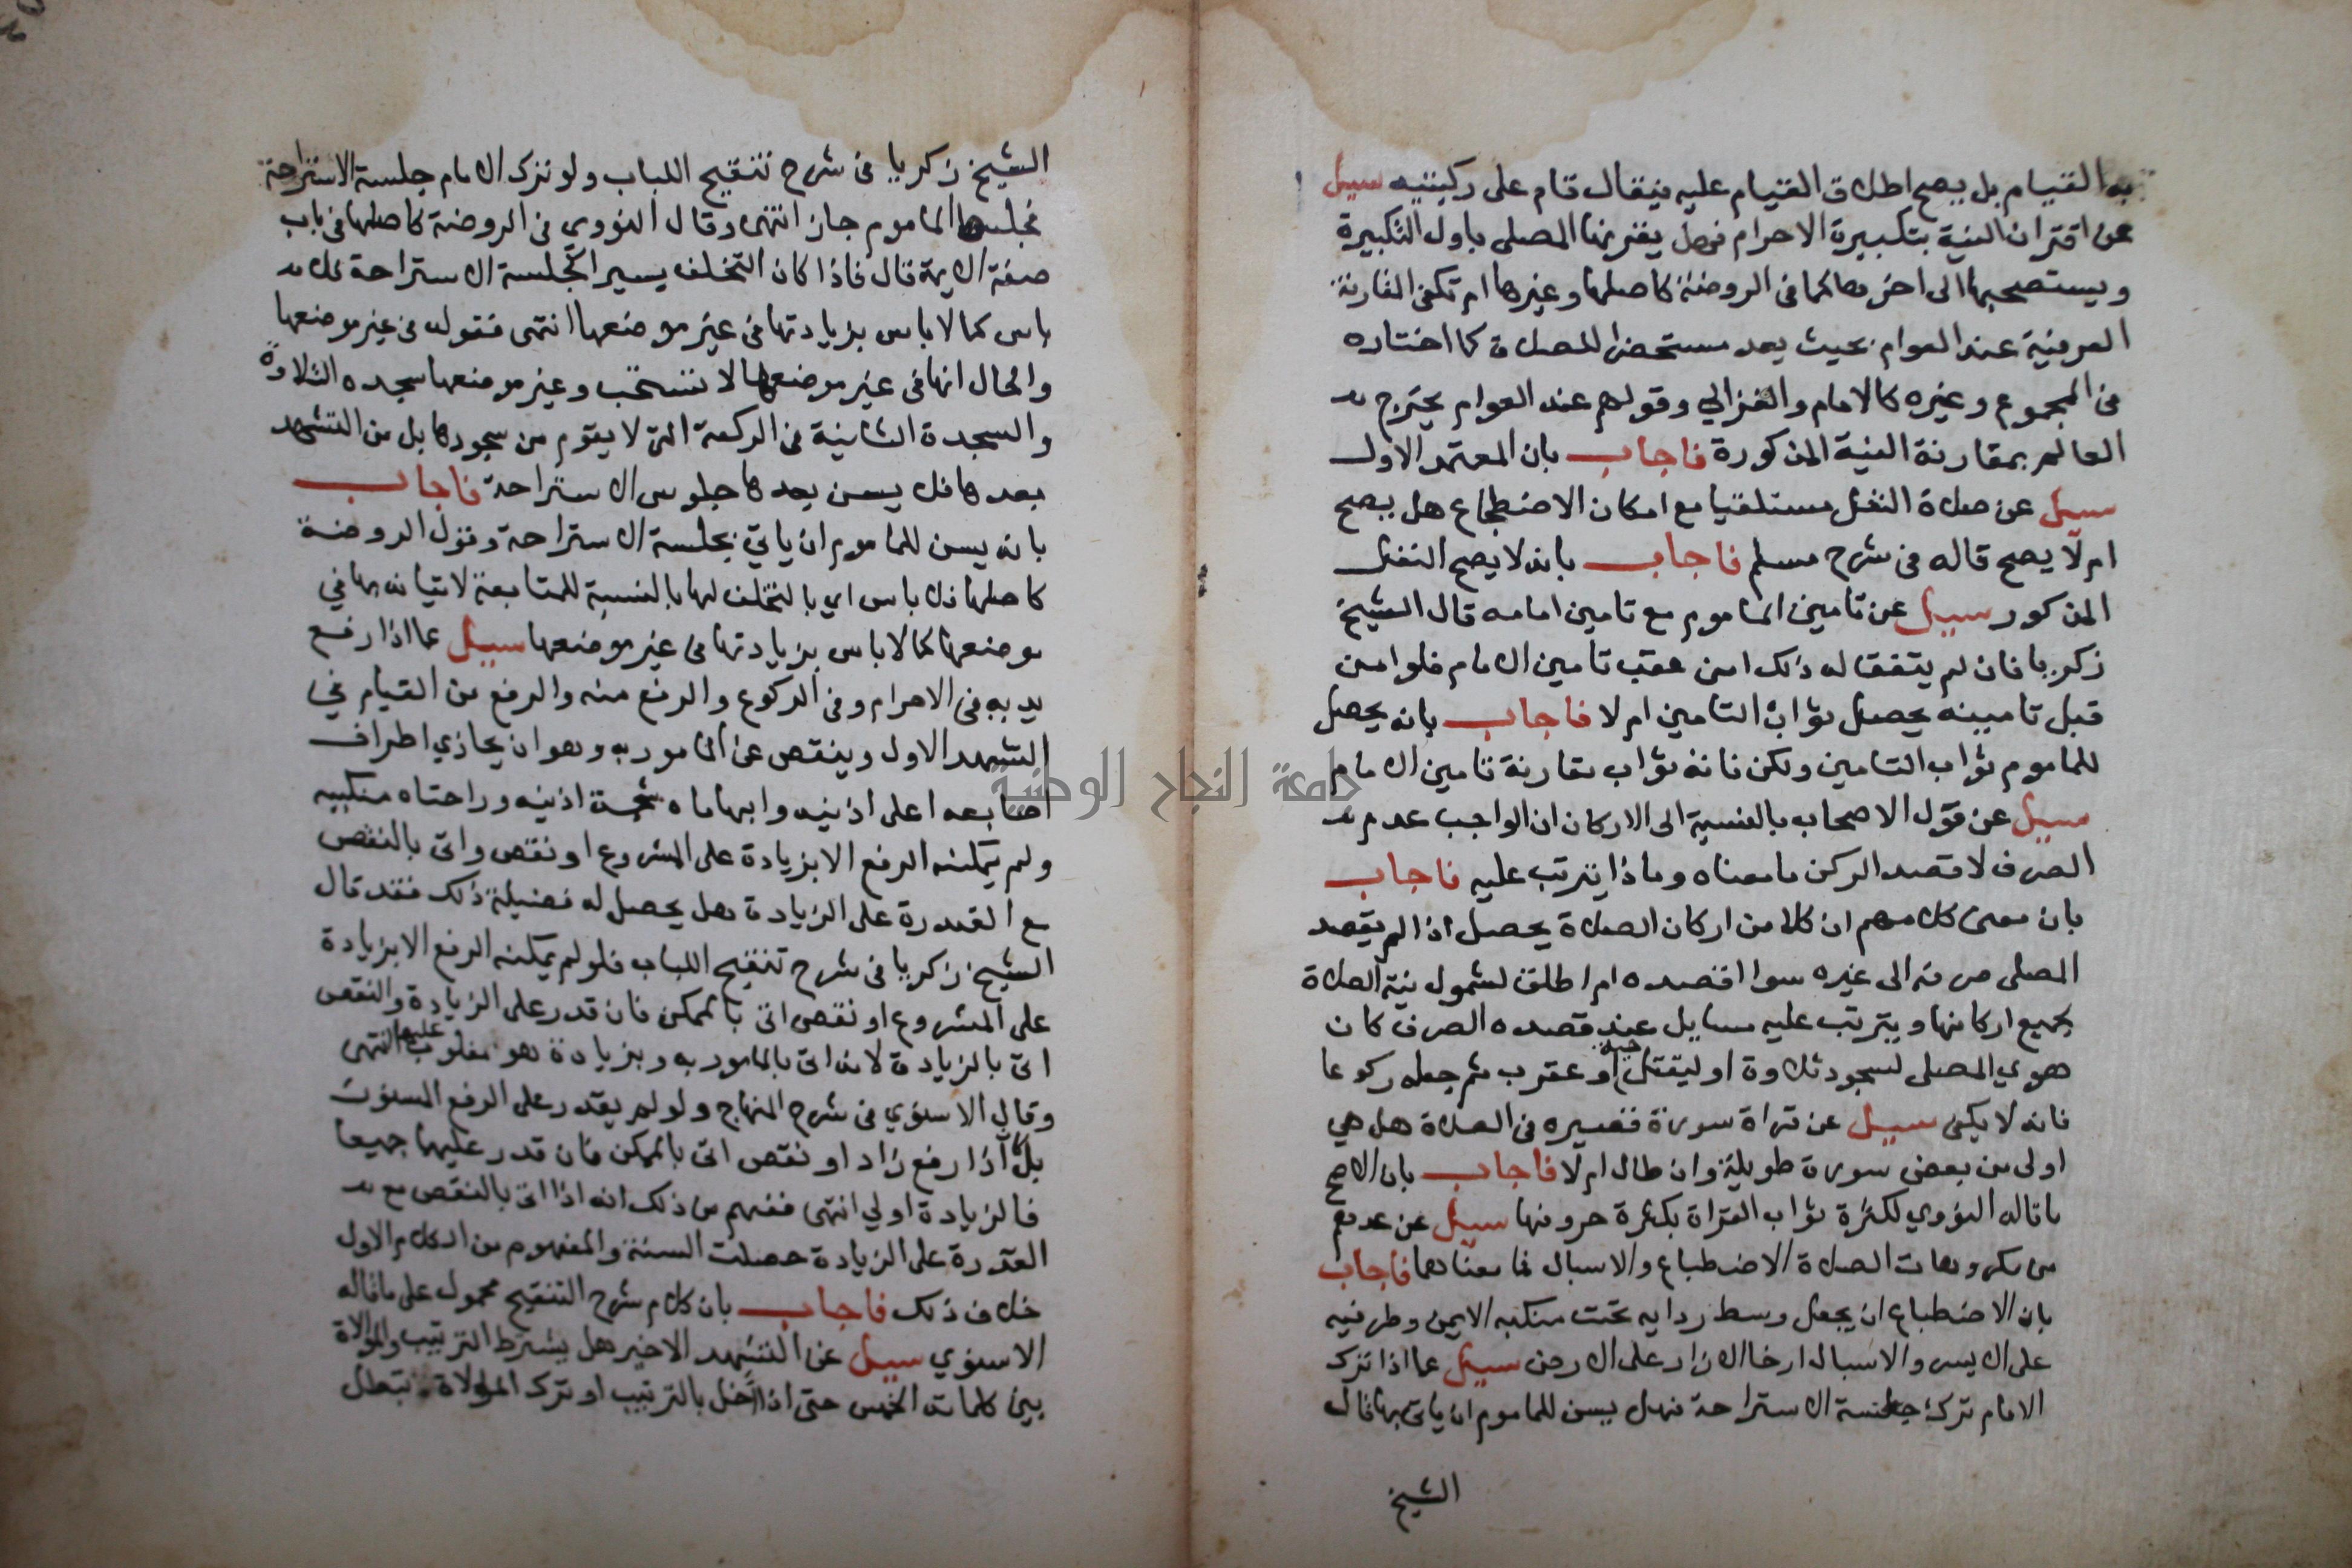 به القيام بل يصح اطلاق القيام عليه فيقال قام على ركبتيه سيل
عن اقتران النية بتكبيرة الاحرام فهل يقرنها المصلى باول التكبيرة
ويستصحبها الى اخرها كما فى الروضة كاصلها وغيرها ام تكفى المقارنة
العرفية عند العوام بحيث يعد مستحضرا للصلاة كما اختاره
فى المجموع وغيره كالامام والغزالي وقولهم عند العوام يحترج به
العالم بمقارنة النية المذكورة فاجاب بان المعتمد الاول
سيل عن صلاة النفل مستلقيا مع امكان الاضطجاع هل يصح
ام لا يصح قاله فى شرح مسلم فاجاب بانه لا يصح النفل
المذكور سيل عن تامين الماموم مع تامين امامه قال الشيخ
زكريا فان لم يتفق له ذلك امن عقب تامين الامام فلو امن
قبل تامينه يحصل ثواب التامين ام لا فاجاب بانه يحصل
للماموم ثواب التامين ولكن فاته ثواب مقارنة تامين الامام
سيل عن قول الاصحاب بالنسبة الى الاركان ان الواجب عدم
الصرف لا قصد الركن ما معناه وماذا يترتب عليه فاجاب
بان معنى كلامهم ان كلا من اركان الصلاة يحصل اذا لم يقصد
المصلى صرفه الى غيره سوا اقصده ام اطلق لشمول نية الصلاة
بجميع اركانها ويترتب عليه مسايل عند قصده الصرف كان
هوي المصلى لسجود تلاوة او ليقتل حية او عقرب ثم جعله ركوعا
فانه لا يكفى سيل عن قراة سورة قصيره فى الصلاة هل هي
اولى من بعض سورة طويلة وان طال ام لا فاجاب بان الاصح
ما قاله النووي لكثرة ثواب القراة بكثرة حروفها سيل عن عدهم
من مكروهات الصلاة الاضطباع والاسبال فما معناهما فاجاب
بان الاضطباع ان يجعل وسط ردايه تحت منكبه الايمن وطرفيه
على الايسر والاسبال ارخا الازار على الارض سيل عما اذا ترك
الامام ترك جلسة الاستراحة فهل يسن للماموم ان ياتى بها قال
الشيخ
الشيخ زكريا فى شرح تنقيح اللباب ولو ترك الامام جلسة الاستراحة
فجلسها الماموم جاز انتهى وقال النووي فى الروضة كاصلها فى باب
صفة الايمة قال فاذا كان التخلف يسيرا كجلسة الاستراحة فلا
باس كما لا باس بزيادتها فى غير موضعها انتهى فقوله فى غير موضعها
والحال انها فى غير موضعها لا تستحب وغير موضعها سجده التلاوة
والسجدة الثانية فى الركعة التى لا يقوم من سجودها بل من التشهد
بعدها فلا يسن بعدها جلوس الاستراحة فاجاب
بانه يسن للماموم ان ياتي بجلسة الاستراحة وقول الروضة
كاصلها فلا باس اي بالتخلف لها بالنسبة للمتابعة لاتيانه بها في
موضعها كما لا باس بزيادتها فى غير موضعها سيل عما اذا رفع
يديه فى الاحرام وفى الركوع والرفع منه والرفع من القيام في
التشهد الاول وينقص عن المامور به وهو ان يحاذي اطراف
جامعة النجاح الوطنية
اصابعه اعلى اذنيه وابهاماه شحمة اذنيه وراحتاه منكبيه
ولم يمكنه الرفع الا بزيادة على المشروع او نقص واتى بالنقص
مع القدرة على الزيادة هل يحصل له فضيلة ذلك فقد قال
الشيخ زكريا فى شرح تنقيح اللباب فلو لم يمكنه الرفع الا بزيادة
على المشروع او نقص اتى بالممكن فان قدر على الزيادة والنقص
اتى بالزيادة لانه اتى بالمامور به وبزيادة هو مغلوب عليها انتهى
وقال الاسنوي فى شرح المنهاج ولو لم يقدر على الرفع المسنون
بل اذا رفع زاد او نقص اتى بالممكن فان قدر عليهما جميعا
فالزيادة اولي انتهى ففهم من ذلك انه اذا اتى بالنقص مع
القدرة على الزيادة حصلت السنة والمفهوم من الكلام الاول
خلاف ذلك فاجاب بان كلام شرح التنقيح محمول على ما قاله
الاسنوي سيل عن التشهد الاخير هل يشترط الترتيب والموالاة
بين كلمات الخمس حتى اذا اخل بالترتيب او ترك الموالاة تبطل